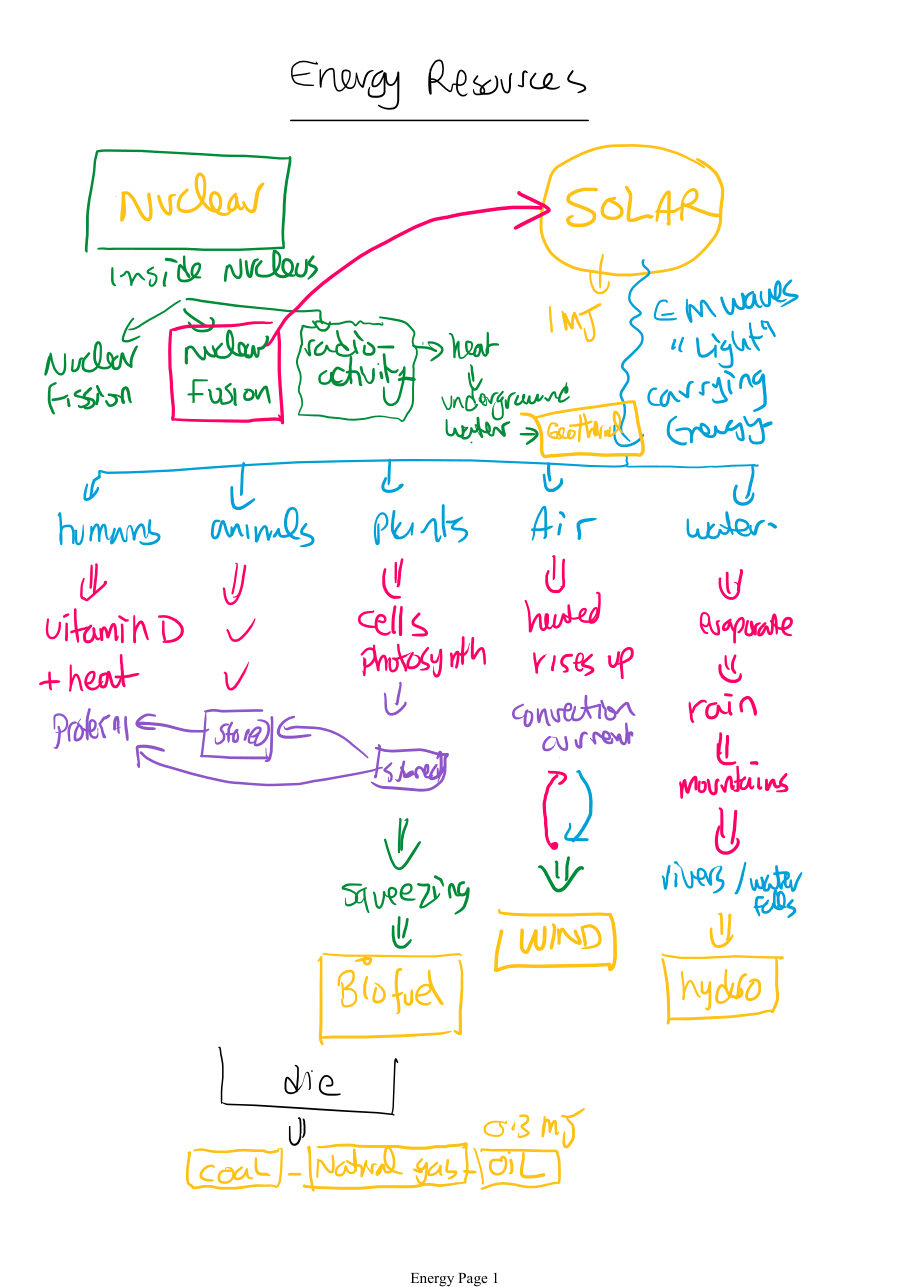 Energy Resources
Nuclear
SOLAR
inside Nucleus
1 MJ
EM waves
"Light"
carrying
Energy
Nuclear
Fission
nuclear
Fusion
radio-
activity
heat
underground
water
Geothermal
humans
animals
Plants
Air
water
vitamin D
+ heat
✓
✓
cells
photosynth
heated
rises up
convection
current
evaporate
rain
mountains
stored
stored
squeezing
rivers / water
falls
WIND
Biofuel
hydro
die
0.3 MJ
coal - Natural gas - OiL
Energy Page 1